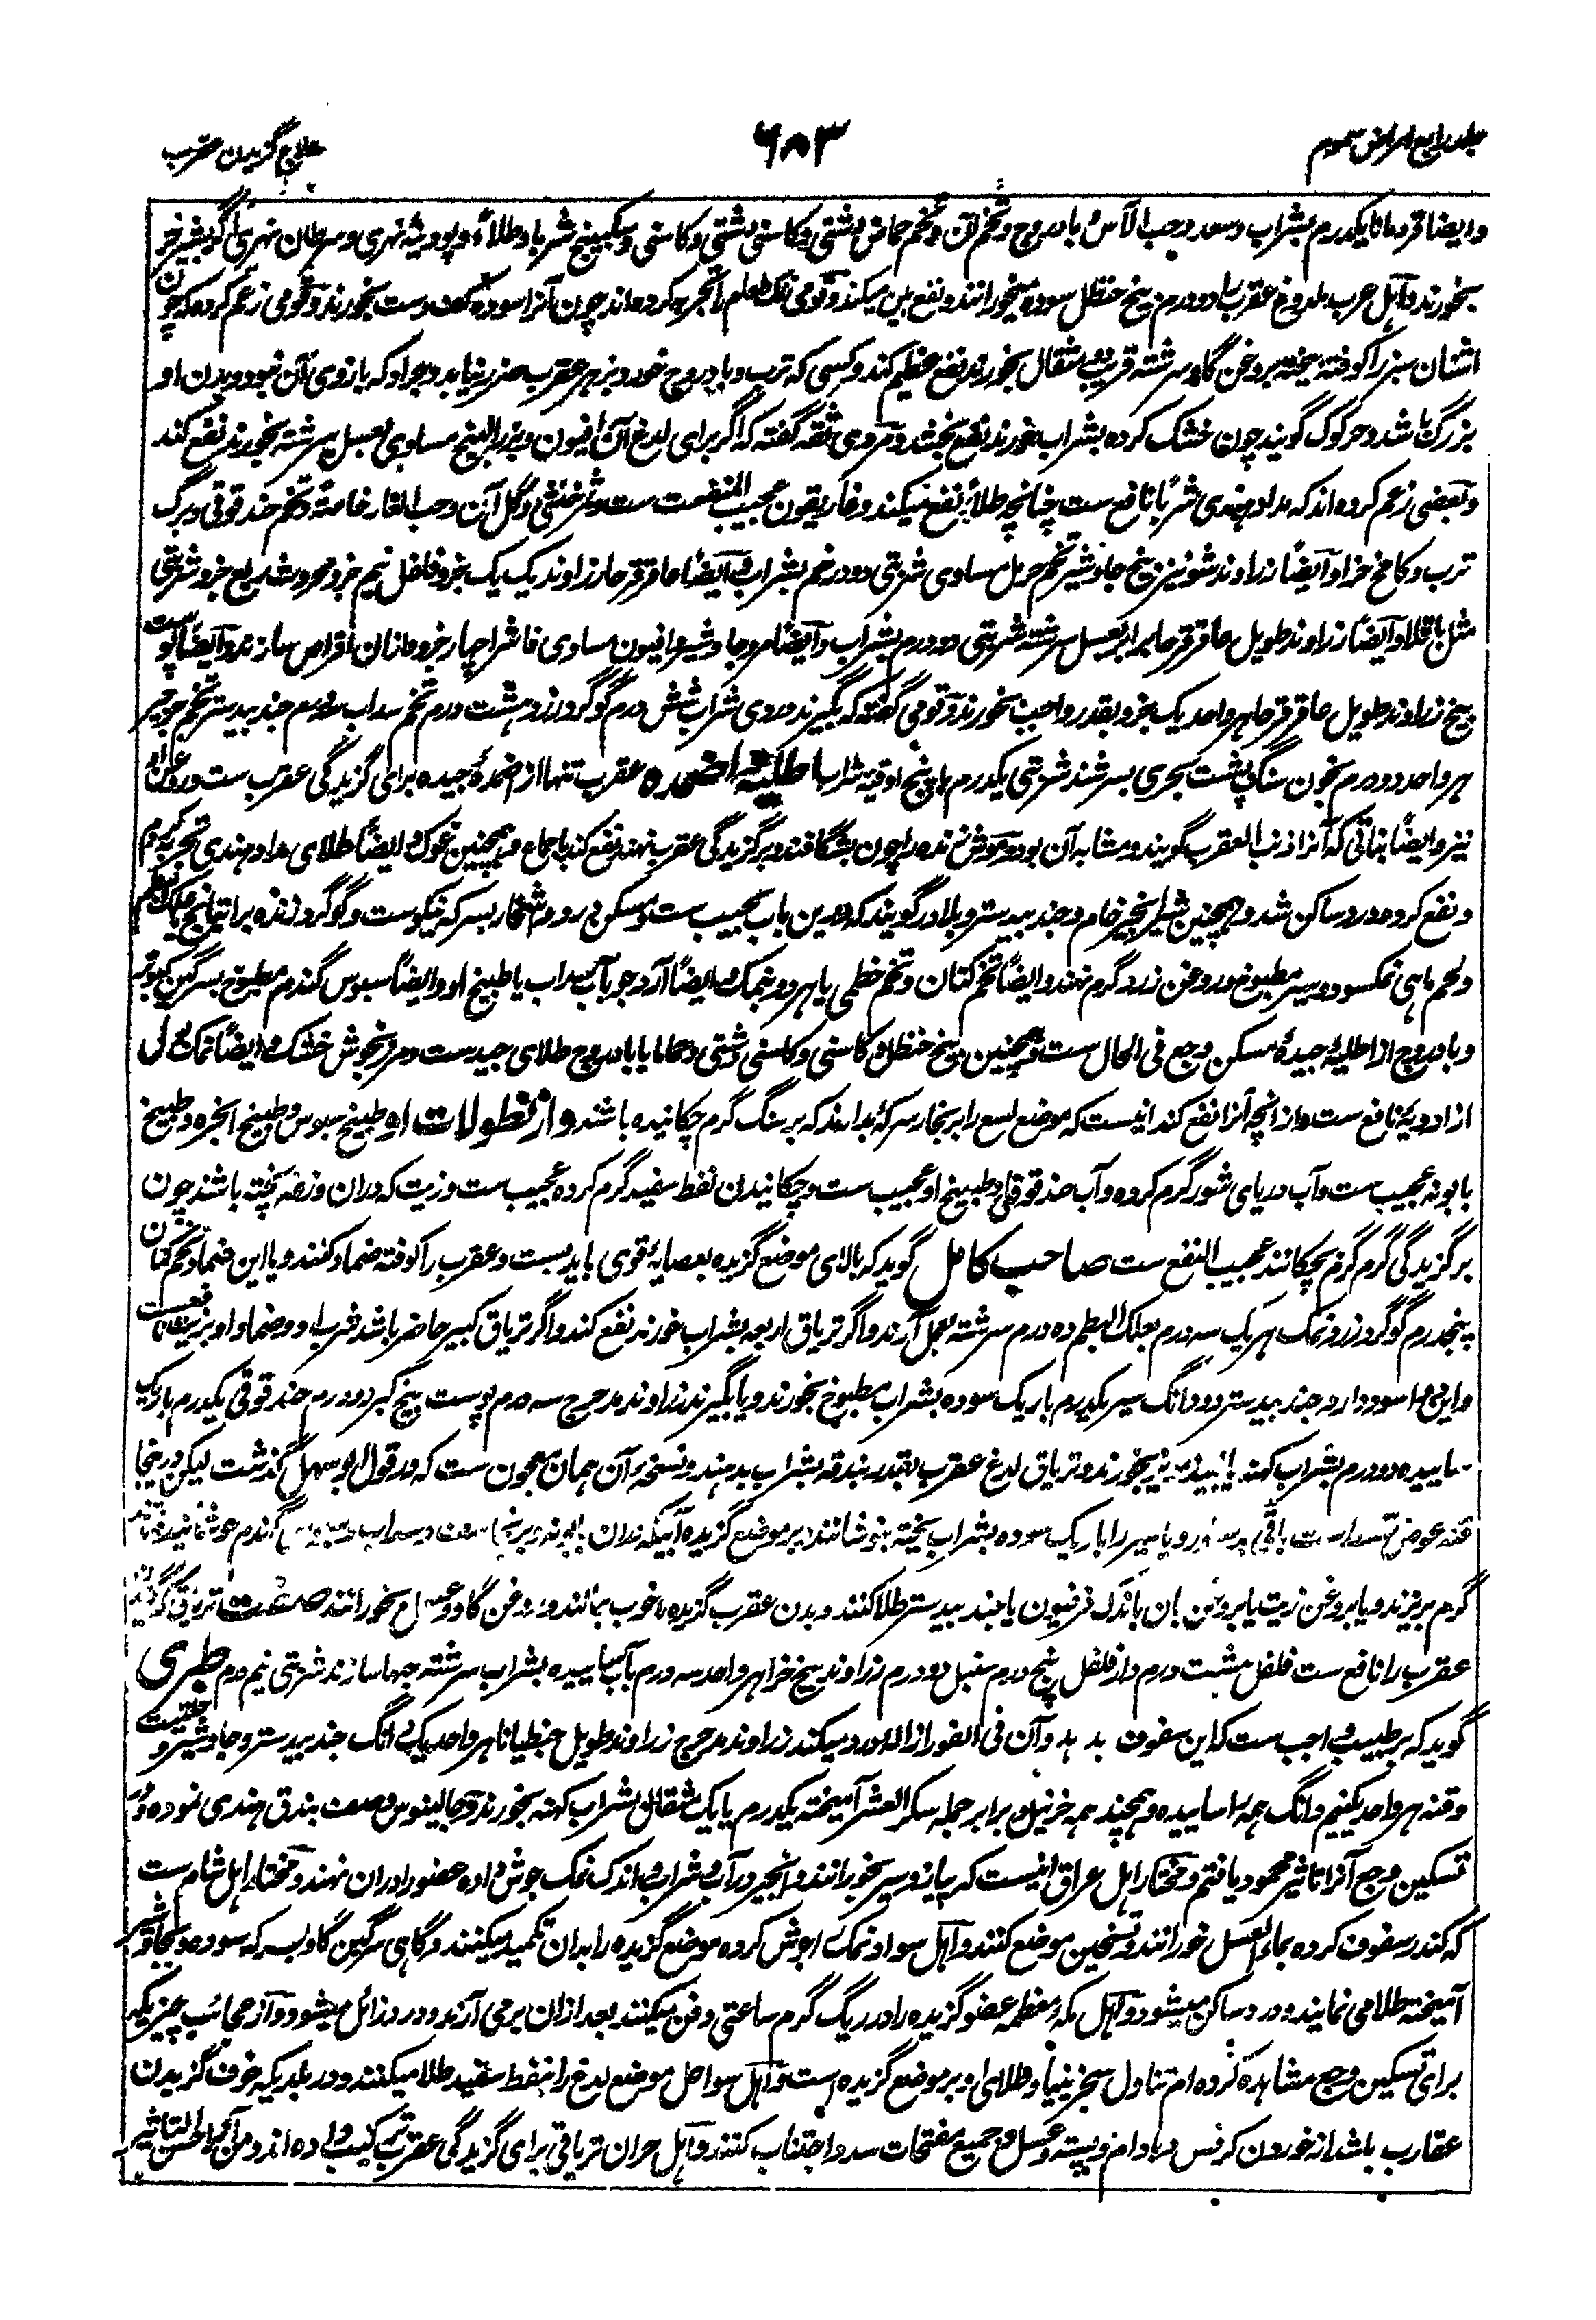 جلد رابع امراض سموم
۶۸۳
علاج گزیدن عقرب
وایضا قردمانا یکدرم بشراب وسعد وحب الآس با بادروج وتخم آن وتخم حماض دشتی وکاسنی دشتی وکاسنی وسکبینج شربا وطلاءً وپودینه نهری وسرطان نهری اگر بشیر خر
بخورند واهل عرب ملدوغ عقرب را دو درم بیخ حنظل سوده میخورانند ونفع بین میکند وقومی نمک طعام را تجربه کرده اند چون آنرا سوده کف دست بخورند وقومی زعم کرده که چون
اشنان سبز را کوفته بیخته بروغن گاو سرشته قریب دو مثقال بخورند نفع عظیم کند وکسی که ترب وبادروج خورد وبزهر عقرب ضرر نیابد وجراد که بازوی آن نبود وبدن او
بزرگ باشد وخرکوک گویند چون خشک کرده بشراب بخورند نفع بخشد ومردی ثقه گفته که اگر برای لدغ آن افیون وبزرالبنج مساوی بعسل سرشته بخورند نفع کند
وبعضی زعم کرده اند که مداد هندی شربًا نافع ست چنانچه طلاءً نفع میکند وغاریقون عجیب المنفعت ست وثمر خنثی وگل آن وحب الغار خاصةً وتخم حندقوقی وبرگ
ترب وکامخ خزا وآیضًا زراوند شونیز وبیخ جاوشیر تخم حرمل مساوی شربتی دو درم بشراب وآیضًا عاقرقرحا زراوند یک یک جزو فلفل نیم جزو محروث ربع جزو شربتی
مثل باقلا وآیضًا زراوند طویل عاقرقرحا برابر بعسل سرشته شربتی دو درم بشراب وآیضًا مر وجاوشیر وافیون مساوی فاشرا چهار جزو ازان اقراص سازند وآیضًا پوست
بیخ زراوند طویل عاقرقرحا هر واحد یک جزو بقدر واجب بخورند وقومی گفته که بگیرند دردی شراب شش درم گوگرد زرد هشت درم تخم سداب سه درم جندبیدستر تخم جرجیر
هر واحد دو درم بخون سنگ پشت بحری بسرشند شربتی یکدرم با پنج اوقیه شراب اطلیه واضمده عقرب تنها از ضمدهٔ جیده برای گزیدگی عقرب ست وروغن او
نیز وایضًا نباتی که آنرا ذنب العقرب گویند ومشابه آن بود وموش زنده را چون بشگافند وبر گزیدگی عقرب نهند نفع کند باجماع وهمچنین غوک وایضًا طلای مداد هندی تجربه کردم
ونفع کرد ودرد ساکن شد وهمچنین شیر انجیر خام وجندبیدستر وبلادر گویند که درین باب عجیب ست ومسکن درد وم اشخار بسرکه نیکوست وگوگرد زنده برابر با علک البطم
ولحم ماهی نمکسود وسیر مطبوخ در روغن زرد گرم نهند وایضًا تخم کتان وتخم خطمی یا هر دو بنمک وایضًا آرد جو بآب سداب یا طبیخ او وایضًا سبوس گندم مطبوخ بسرگین کبوتر
وبادروج از اطلیهٔ جیدهٔ مسکن وجع فی الحال ست وهمچنین بیخ حنظل وکاسنی وکاسنی دشتی وحاما یا بادروج طلای جیدست ومرزنجوش خشک وایضًا نمک بول
از ادویه نافع ست واز انچه آنرا نفع کند اینست که موضع لسع را بر بخار سرکه بدارند که بر سنگ گرم چکانیده باشند واز نطولات او طبیخ سبوس وطبیخ انجره وطبیخ
بابونه عجیب ست وآب دریای شور گرم کرده وآب حندقوقی وطبیخ او عجیب ست وچکانیدن نفط سفید گرم کرده عجیب ست وزیت که دران وزغه پخته باشند چون
بر گزیدگی گرم گرم بچکانند عجیب النفع ست صاحب کامل گوید که بالای موضع گزیده بعصابهٔ قوی باید بست وعقرب را کوفته ضماد کنند ویا این ضماد تخم کتان
پنجدرم گوگرد زرد ونمک هر یک سه درم بعلک البطم ده درم سرشته بعمل آرند واگر تریاق اربعه بشراب خورند نفع کند واگر تریاق کبیر حاضر باشد شرب او وضماد او بزیت نافعست
واین هم اسود دارد جندبیدستر دو دانگ سیر یکدرم باریک سوده بشراب مطبوخ بخورند ویا بگیرند زراوند مدحرج سه درم پوست بیخ کبر دو درم حندقوقی یکدرم باریک
ساییده دو درم بشراب کهنه یا نبیذ بخورند وتریاق لدغ عقرب بقدر بندقه بشراب بدهند ونسخهٔ آن همان معجون ست که در قول ابوسهل گذشت لیکن درینجا
قند عوض قسط است باقی بدستور ویا سیر را باریک سوده بشراب پخته بنوشانند وبر موضع گزیده آبیکه دران بابونه وسداب وسبوس گندم جوشانیده باشند
گرم بریزند ویا بروغن زیت یا بروغن بان باندک فرفیون یا جندبیدستر طلا کنند وبدن عقرب گزیده را خوب بمالند وروغن گاو وعسل بخورانند صفت تریاق گزیدن
عقرب را نافع ست فلفل هشت درم دارفلفل پنج درم سنبل دو درم زراوند بیخ خزا هر واحد سه درم بآب ساییده بشراب سرشته حبها سازند شربتی نیم درم طبری
گوید که بر طبیب واجب ست که این سفوف بدهد وآن فی الفور ازاله درد میکند زراوند مدحرج زراوند طویل جنطیانا هر واحد یک دانگ جندبیدستر وجاوشیر وحلتیت
وقنه هر واحد یکنیم دانگ همه را ساییده وهمچند همه خرنیل وبرابر جمله سکرالعشر آمیخته یکدرم یا یک مثقال بشراب کهنه بخورند وجالینوس وصف بندق هندی نموده ودر
تسکین وجع آنرا تاثیر محمود یافتم ومختار اهل عراق اینست که پیاز وسیر خورانند وانجیر در آب وشراب واندک نمک جوش داده عضو را دران نهند ومختار اهل شام ست
که کندر سفوف کرده بماءالعسل خورانند وتسخین موضع کنند وآهل سواد نمک را جوش کرده موضع گزیده را بدان تکمید میکنند وگاهی سرگین گاو بسرکه سوده وبجاوشیر
آمیخته طلا می نمایند ودرد ساکن میشود وآهل مکهٔ معظمه عضو گزیده را در ریگ گرم ساعتی دفن میکنند بعد ازان برمی آرند ودرد زائل میشود وآز عجائب چیزیکه
برای تسکین وجع مشاهده کرده ام تناول سجزینیا وطلای او بر موضع گزیده است وآهل سواحل موضع لدغ را بنفط سفید طلا میکنند ودر بلدیکه خوف گزیدن
عقارب باشد از خوردن کرفس وبادام وپسته وعسل وجمیع مفتحات سدد اجتناب کنند وآهل حران تریاقی برای گزیدگی عقرب ترکیب داده اند ومن آنرا حسن التاثیر